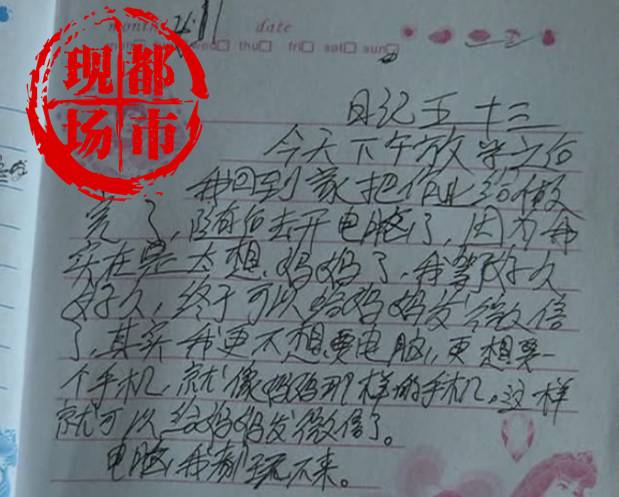 month 26.11 date
wed thu fri sat sun
都市
现场
日记五十三
今天下午放学之后
我回到家把作业给做
完了,随后去开电脑了,因为我
实在是太想妈妈了,我等了好久
好久,终于可以给妈妈发微信
了,其实我更不想要电脑,更想要一
个手机,就像妈妈那样的手机,这样
就可以给妈妈发微信了。
电脑我都玩不来。